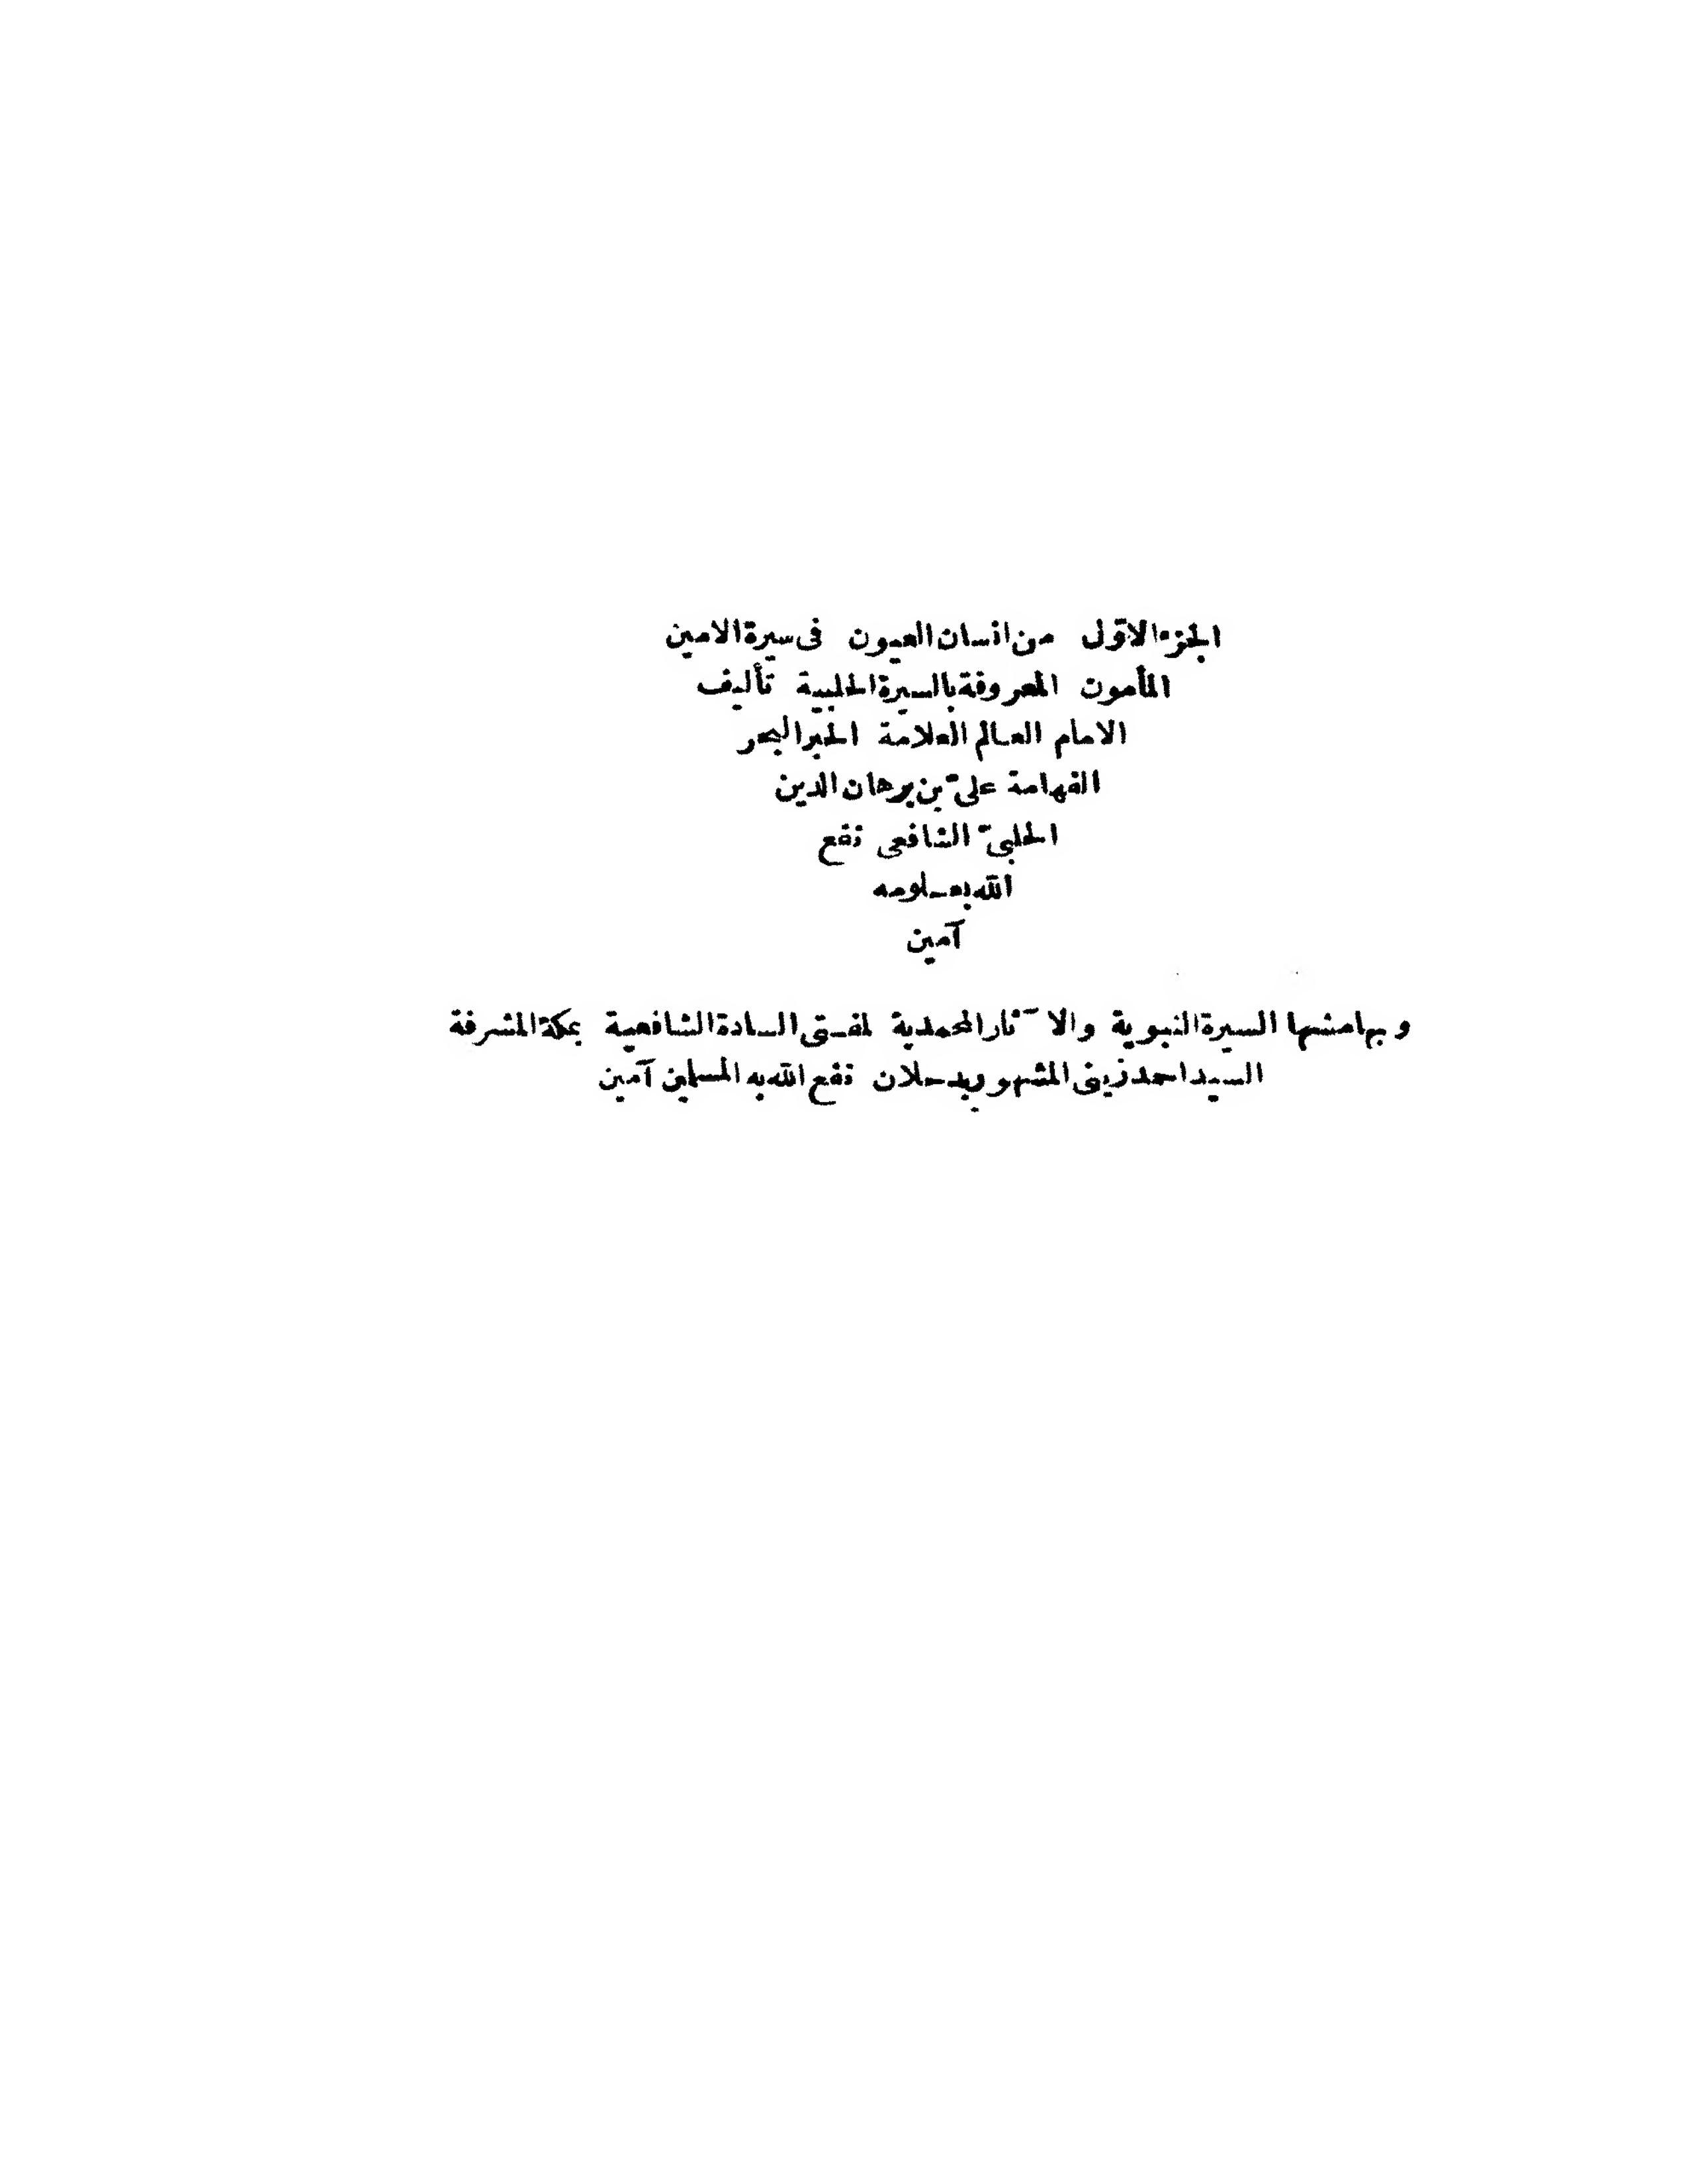 الجزء الاوّل من انسان العيون فى سيرة الامين
المأمون المعروفة بالسيرة الحلبية تأليف
الامام العالم العلامة الحبر البحر
الفهامة علىّ بن برهان الدين
الحلبىّ الشافعى نفع
الله بعلومه
آمين
وبهامشها السيرة النبوية والآثار المحمدية لمفتى السادة الشافعية بمكة المشرفة
السيد احمد زينى المشهور بدحلان نفع الله به المسلمين آمين